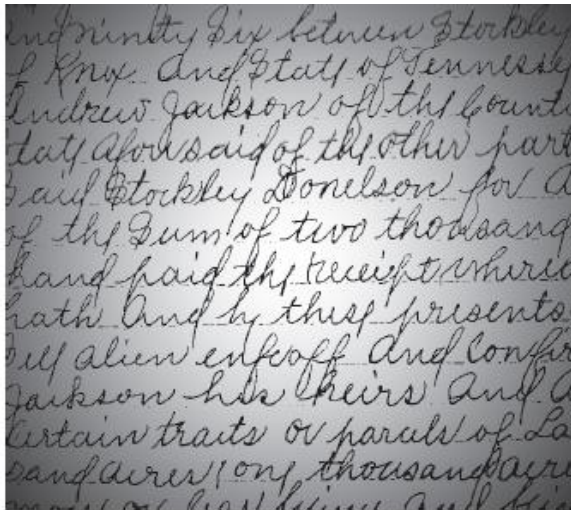 and ninity Six between Stockley
of Knox and State of Tennessy
Andrew Jackson of the Count
tate aforesaid of the other part
Said Stockley Donelson for a
of the Sum of two thousand
hand paid the receipt where
hath and by these presents
Sell alien enfeoff and Confir
Jackson his heirs and a
Certain traits or parcels of La
sand acres (one thousand acre
more or less lying and bein